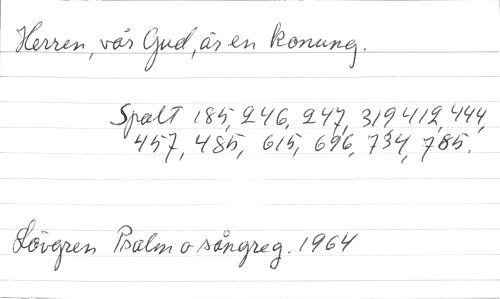 Herren, vår Gud, är en konung.
Spalt 185, 246, 247, 319, 412, 444,
457, 485, 615, 696, 734, 785.
Lövgren Psalm o sångreg. 1964